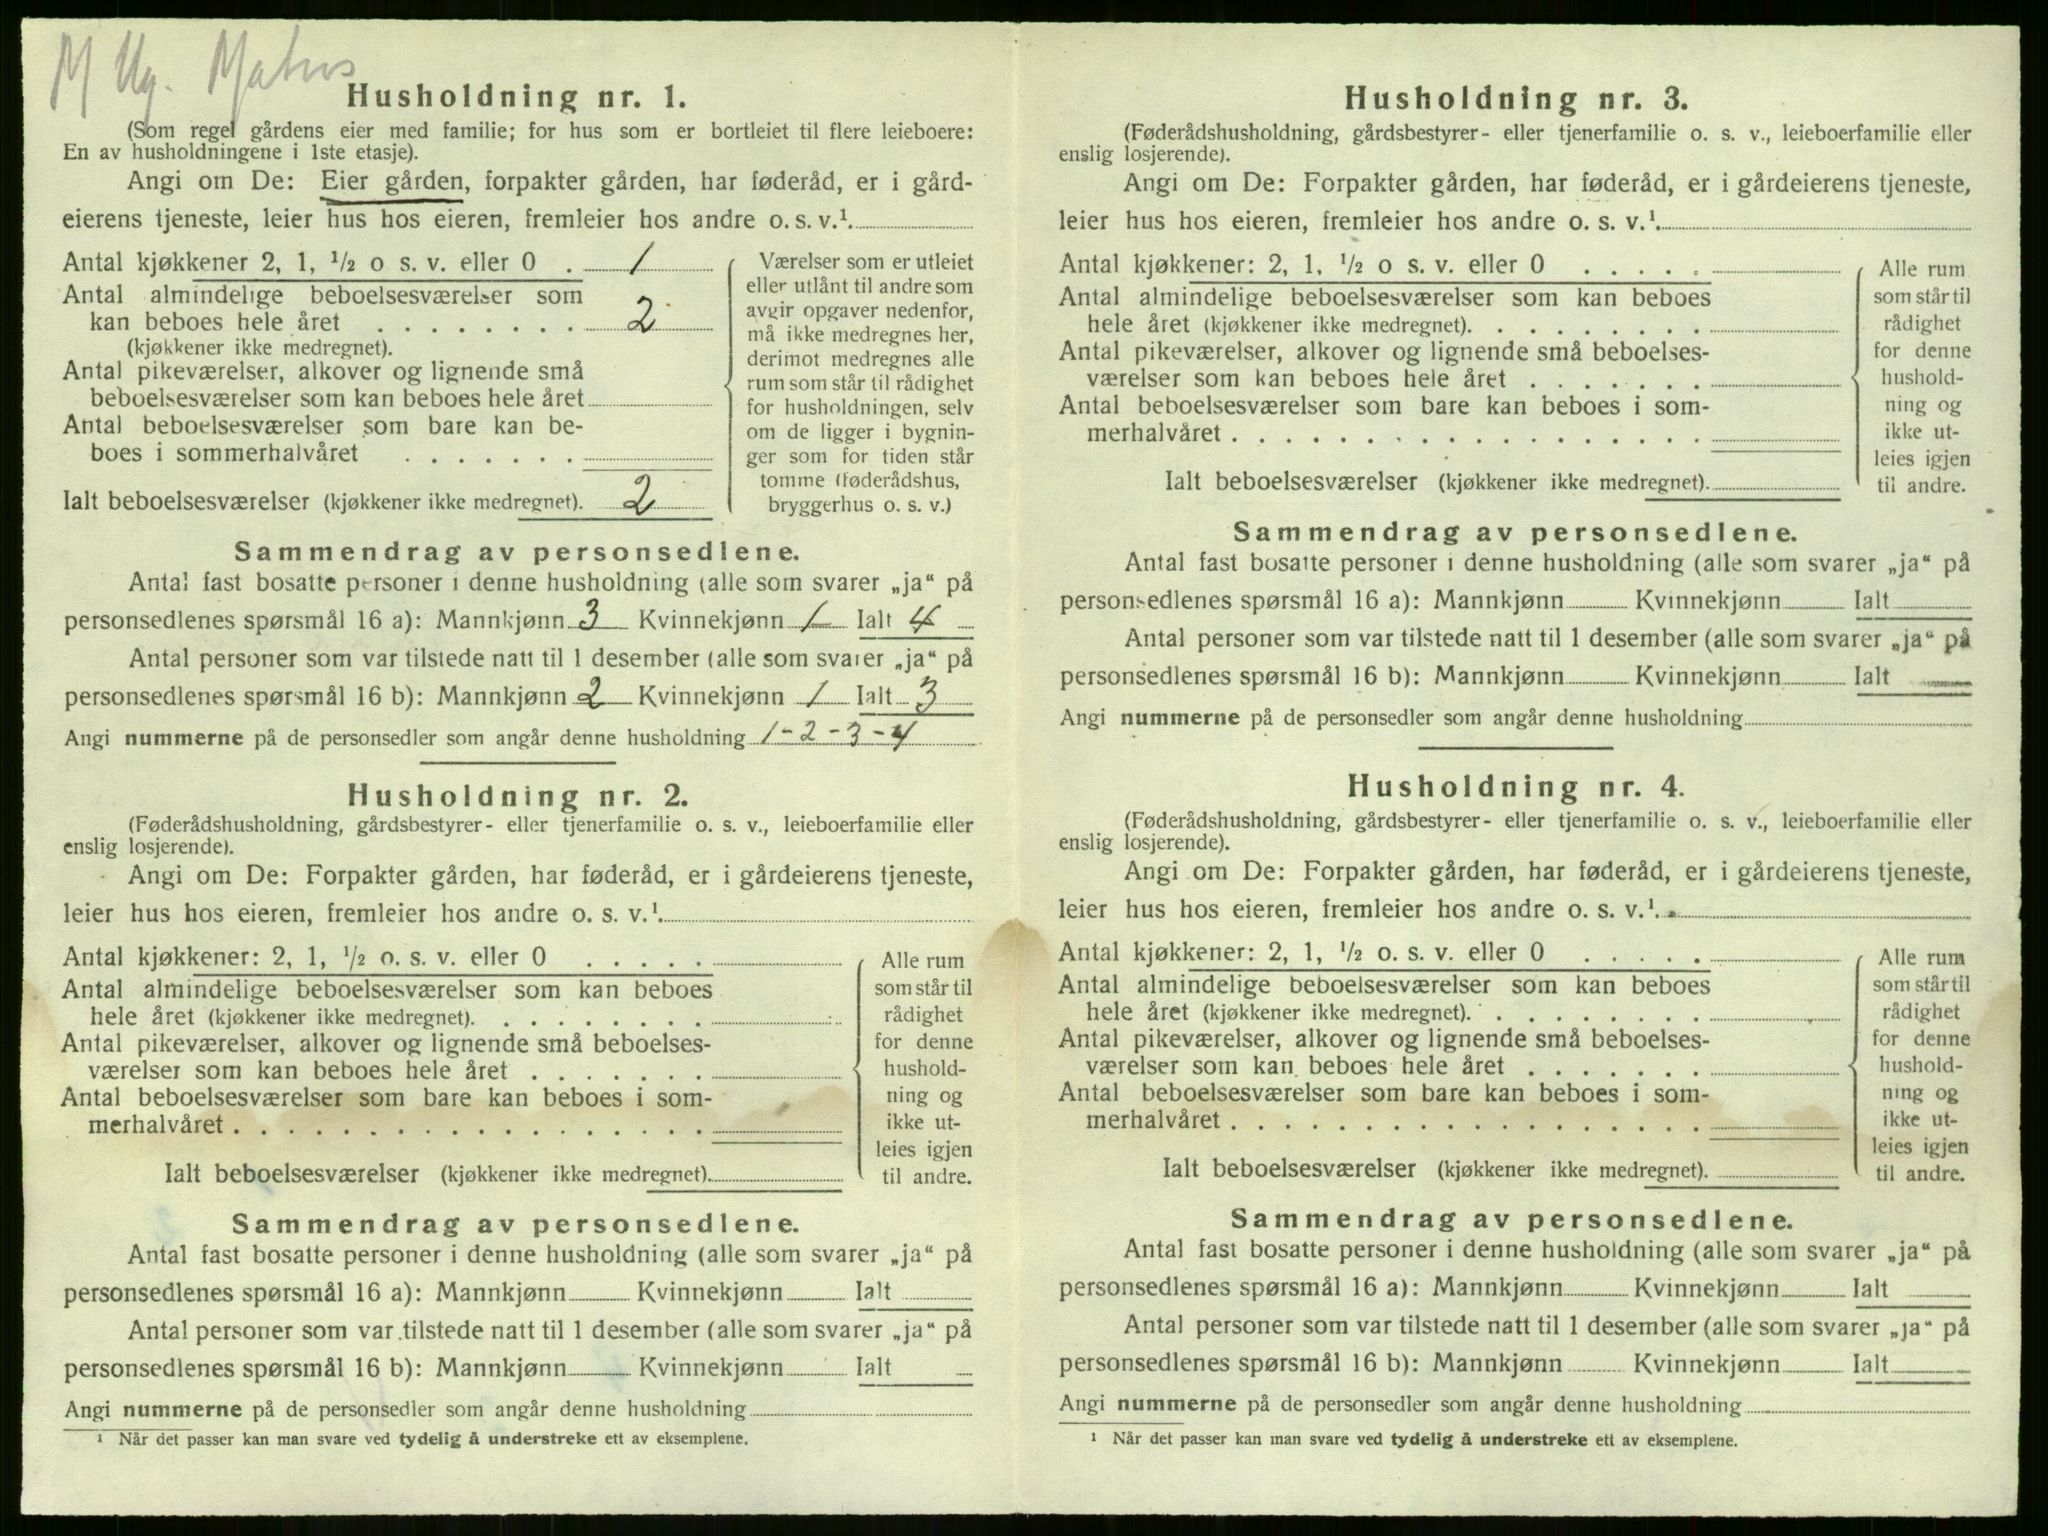 Husholdning nr. 1.
(Som regel gårdens eier med familie; for hus som er bortleiet til flere leieboere:
En av husholdningene i 1ste etasje).
Angi om De: Eier gården, forpakter gården, har føderåd, er i gård-
eierens tjeneste, leier hus hos eieren, fremleier hos andre o. s. v.¹
Antal kjøkkener 2, 1, ½ o s. v. eller 0 . 1
Antal almindelige beboelsesværelser som
kan beboes hele året . . . . . . . . 2
(kjøkkener ikke medregnet).
Antal pikeværelser, alkover og lignende små
beboelsesværelser som kan beboes hele året
Antal beboelsesværelser som bare kan be-
boes i sommerhalvåret . . . . . . .
Ialt beboelsesværelser (kjøkkener ikke medregnet). 2
Værelser som er utleiet
eller utlånt til andre som
avgir opgaver nedenfor,
må ikke medregnes her,
derimot medregnes alle
rum som står til rådighet
for husholdningen, selv
om de ligger i bygnin-
ger som for tiden står
tomme (føderådshus,
bryggerhus o. s. v.)
Sammendrag av personsedlene.
Antal fast bosatte personer i denne husholdning (alle som svarer „ja“ på
personsedlenes spørsmål 16 a): Mannkjønn 3 Kvinnekjønn 1 Ialt 4
Antal personer som var tilstede natt til 1 desember (alle som svarer „ja“ på
personsedlenes spørsmål 16 b): Mannkjønn 2 Kvinnekjønn 1 Ialt 3
Angi nummerne på de personsedler som angår denne husholdning 1-2-3-4
Husholdning nr. 2.
(Føderådshusholdning, gårdsbestyrer- eller tjenerfamilie o. s. v., leieboerfamilie eller
enslig losjerende).
Angi om De: Forpakter gården, har føderåd, er i gårdeierens tjeneste,
leier hus hos eieren, fremleier hos andre o. s. v.¹
Antal kjøkkener: 2, 1, ½ o. s. v. eller 0 . . . . .
Antal almindelige beboelsesværelser som kan beboes
hele året (kjøkkener ikke medregnet). . . . . . . . .
Antal pikeværelser, alkover og lignende små beboelses-
værelser som kan beboes hele året . . . . . . .
Antal beboelsesværelser som bare kan beboes i som-
merhalvåret . . . . . . . . . . . . . . . . . .
Ialt beboelsesværelser (kjøkkener ikke medregnet).
Alle rum
som står til
rådighet
for denne
hushold-
ning og
ikke ut-
leies igjen
til andre.
Sammendrag av personsedlene.
Antal fast bosatte personer i denne husholdning (alle som svarer „ja“ på
personsedlenes spørsmål 16 a): Mannkjønn Kvinnekjønn Ialt
Antal personer som var tilstede natt til 1 desember (alle som svarer „ja“ på
personsedlenes spørsmål 16 b): Mannkjønn Kvinnekjønn Ialt
Angi nummerne på de personsedler som angår denne husholdning
¹ Når det passer kan man svare ved tydelig å understreke ett av eksemplene.
Husholdning nr. 3.
(Føderådshusholdning, gårdsbestyrer- eller tjenerfamilie o. s. v., leieboerfamilie eller
enslig losjerende).
Angi om De: Forpakter gården, har føderåd, er i gårdeierens tjeneste,
leier hus hos eieren, fremleier hos andre o. s. v.¹
Antal kjøkkener: 2, 1, ½ o s. v. eller 0 . . . . .
Antal almindelige beboelsesværelser som kan beboes
hele året (kjøkkener ikke medregnet). . . . . . . . .
Antal pikeværelser, alkover og lignende små beboelses-
værelser som kan beboes hele året . . . . . . .
Antal beboelsesværelser som bare kan beboes i som-
merhalvåret . . . . . . . . . . . . . . . . . .
Ialt beboelsesværelser (kjøkkener ikke medregnet).
Alle rum
som står til
rådighet
for denne
hushold-
ning og
ikke ut-
leies igjen
til andre.
Sammendrag av personsedlene.
Antal fast bosatte personer i denne husholdning (alle som svarer „ja“ på
personsedlenes spørsmål 16 a): Mannkjønn Kvinnekjønn Ialt
Antal personer som var tilstede natt til 1 desember (alle som svarer „ja“ på
personsedlenes spørsmål 16 b): Mannkjønn Kvinnekjønn Ialt
Angi nummerne på de personsedler som angår denne husholdning
Husholdning nr. 4.
(Føderådshusholdning, gårdsbestyrer- eller tjenerfamilie o. s. v., leieboerfamilie eller
enslig losjerende).
Angi om De: Forpakter gården, har føderåd, er i gårdeierens tjeneste,
leier hus hos eieren, fremleier hos andre o. s. v.¹
Antal kjøkkener: 2, 1, ½ o. s. v. eller 0 . . . . .
Antal almindelige beboelsesværelser som kan beboes
hele året (kjøkkener ikke medregnet). . . . . . . . .
Antal pikeværelser, alkover og lignende små beboelses-
værelser som kan beboes hele året . . . . . . .
Antal beboelsesværelser som bare kan beboes i som-
merhalvåret . . . . . . . . . . . . . . . . . .
Ialt beboelsesværelser (kjøkkener ikke medregnet).
Alle rum
som står til
rådighet
for denne
hushold-
ning og
ikke ut-
leies igjen
til andre.
Sammendrag av personsedlene.
Antal fast bosatte personer i denne husholdning (alle som svarer „ja“ på
personsedlenes spørsmål 16 a): Mannkjønn Kvinnekjønn Ialt
Antal personer som var tilstede natt til 1 desember (alle som svarer „ja“ på
personsedlenes spørsmål 16 b): Mannkjønn Kvinnekjønn Ialt
Angi nummerne på de personsedler som angår denne husholdning
¹ Når det passer kan man svare ved tydelig å understreke ett av eksemplene.